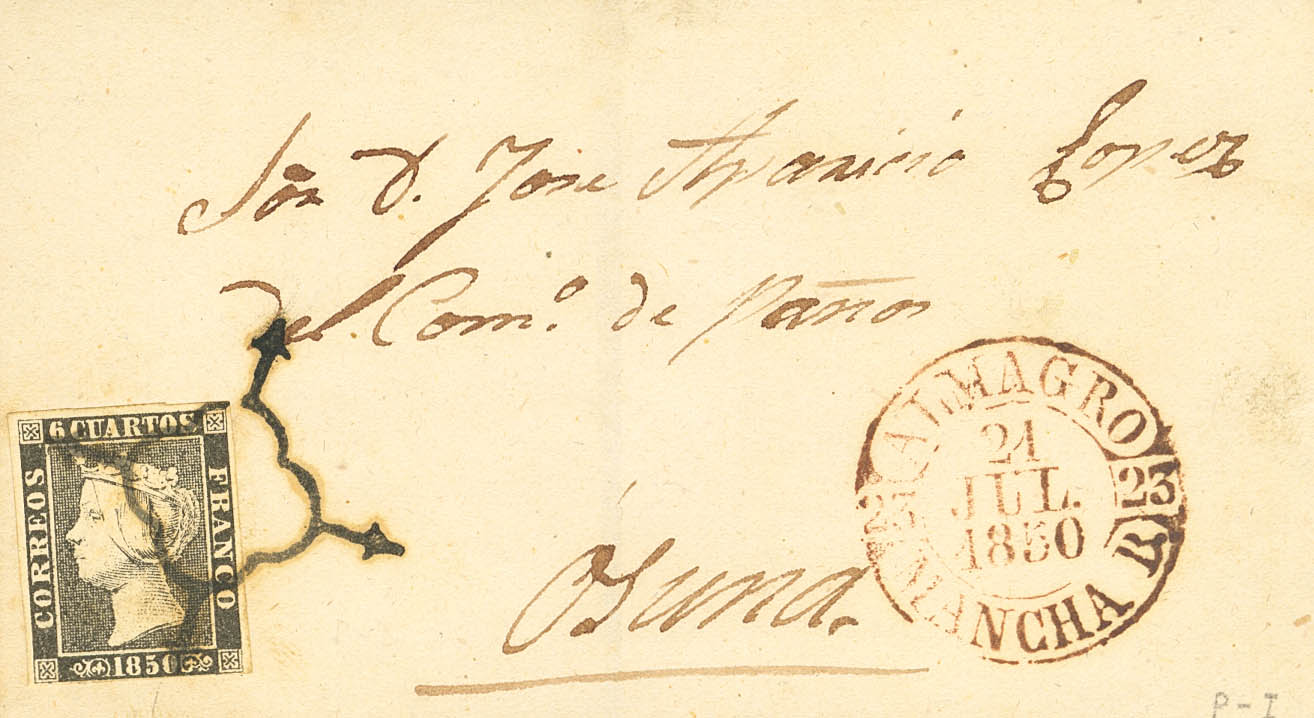 Sor D. Jose Aparicio Lopez
del Como. de paños
6 CUARTOS
CORREOS
FRANCO
1850
ALMAGRO
21
JUL.
1850
23
23
MANCHA B
Osuna.
P-I